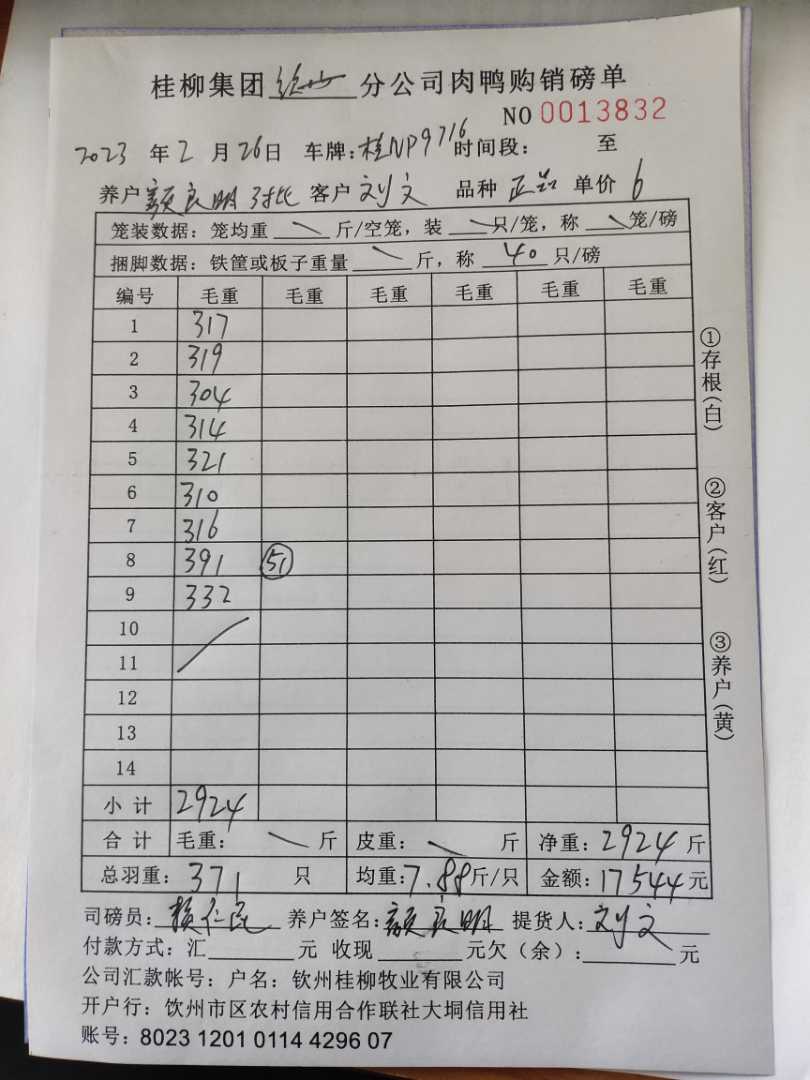 桂柳集团 分公司肉鸭购销磅单
NO 0013832
2023 年 2 月 26 日 车牌: 桂NP9716 时间段: 至
养户 颜良明 对比 客户 刘文 品种 正品 单价 6
笼装数据: 笼均重 斤/空笼, 装 只/笼, 称 笼/磅
捆脚数据: 铁筐或板子重量 斤, 称 40 只/磅
编号 毛重 毛重 毛重 毛重 毛重 毛重
1 317
2 319
3 304
4 314
5 321
6 310
7 316
8 391 51
9 332
10
11
12
13
14
小计 2924
合计 毛重: 斤 皮重: 斤 净重: 2924 斤
总羽重: 371 只 均重: 7.88 斤/只 金额: 17544 元
司磅员: 养户签名: 颜良明 提货人: 刘文
付款方式: 汇 元 收现 元欠(余): 元
公司汇款帐号: 户名: 钦州桂柳牧业有限公司
开户行: 饮州市区农村信用合作联社大垌信用社
账号: 8023 1201 0114 4296 07
①存根(白)
②客户(红)
③养户(黄)